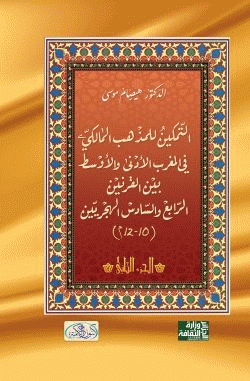 الدكتور هيصام موسى
التمكين للمذهب المالكي
في المغرب الأدنى والأوسط
بين القرنين
الرابع والسادس الهجريين
(10-12م)
الجزء الثاني
وزارة
الثقافة